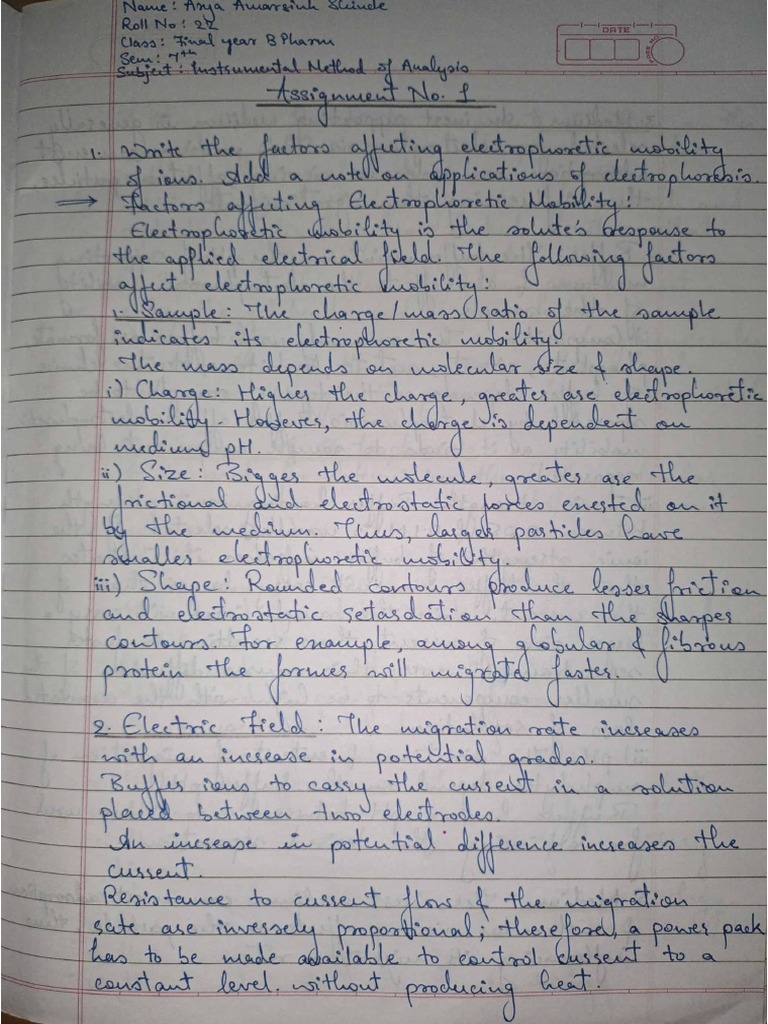 Name: Arya Amarsinh Shinde
Roll No: 22
Class: Final year B Pharm
Sem: 7th
Subject: Instrumental Method of Analysis
DATE
Assignment No. 1
1. Write the factors affecting electrophoretic mobility
of ions. Add a note on applications of electrophoresis.
⇒ Factors affecting Electrophoretic Mobility:
Electrophoretic mobility is the solute's response to
the applied electrical field. The following factors
affect electrophoretic mobility:
1. Sample: The charge/mass ratio of the sample
indicates its electrophoretic mobility.
The mass depends on molecular size & shape.
i) Charge: Higher the charge, greater are electrophoretic
mobility. However, the charge is dependent on
medium pH.
ii) Size: Bigger the molecule, greater are the
frictional and electrostatic forces exerted on it
by the medium. Thus, larger particles have
smaller electrophoretic mobility.
iii) Shape: Rounded contours produce lesser friction
and electrostatic retardation than the sharper
contours. For example, among globular & fibrous
protein the former will migrate faster.
2. Electric Field: The migration rate increases
with an increase in potential grades.
Buffer ions to carry the current in a solution
placed between two electrodes.
An increase in potential difference increases the
current.
Resistance to current flow & the migration
rate are inversly proportional; therefore, a power pack
has to be made available to control current to a
constant level. without producing heat.